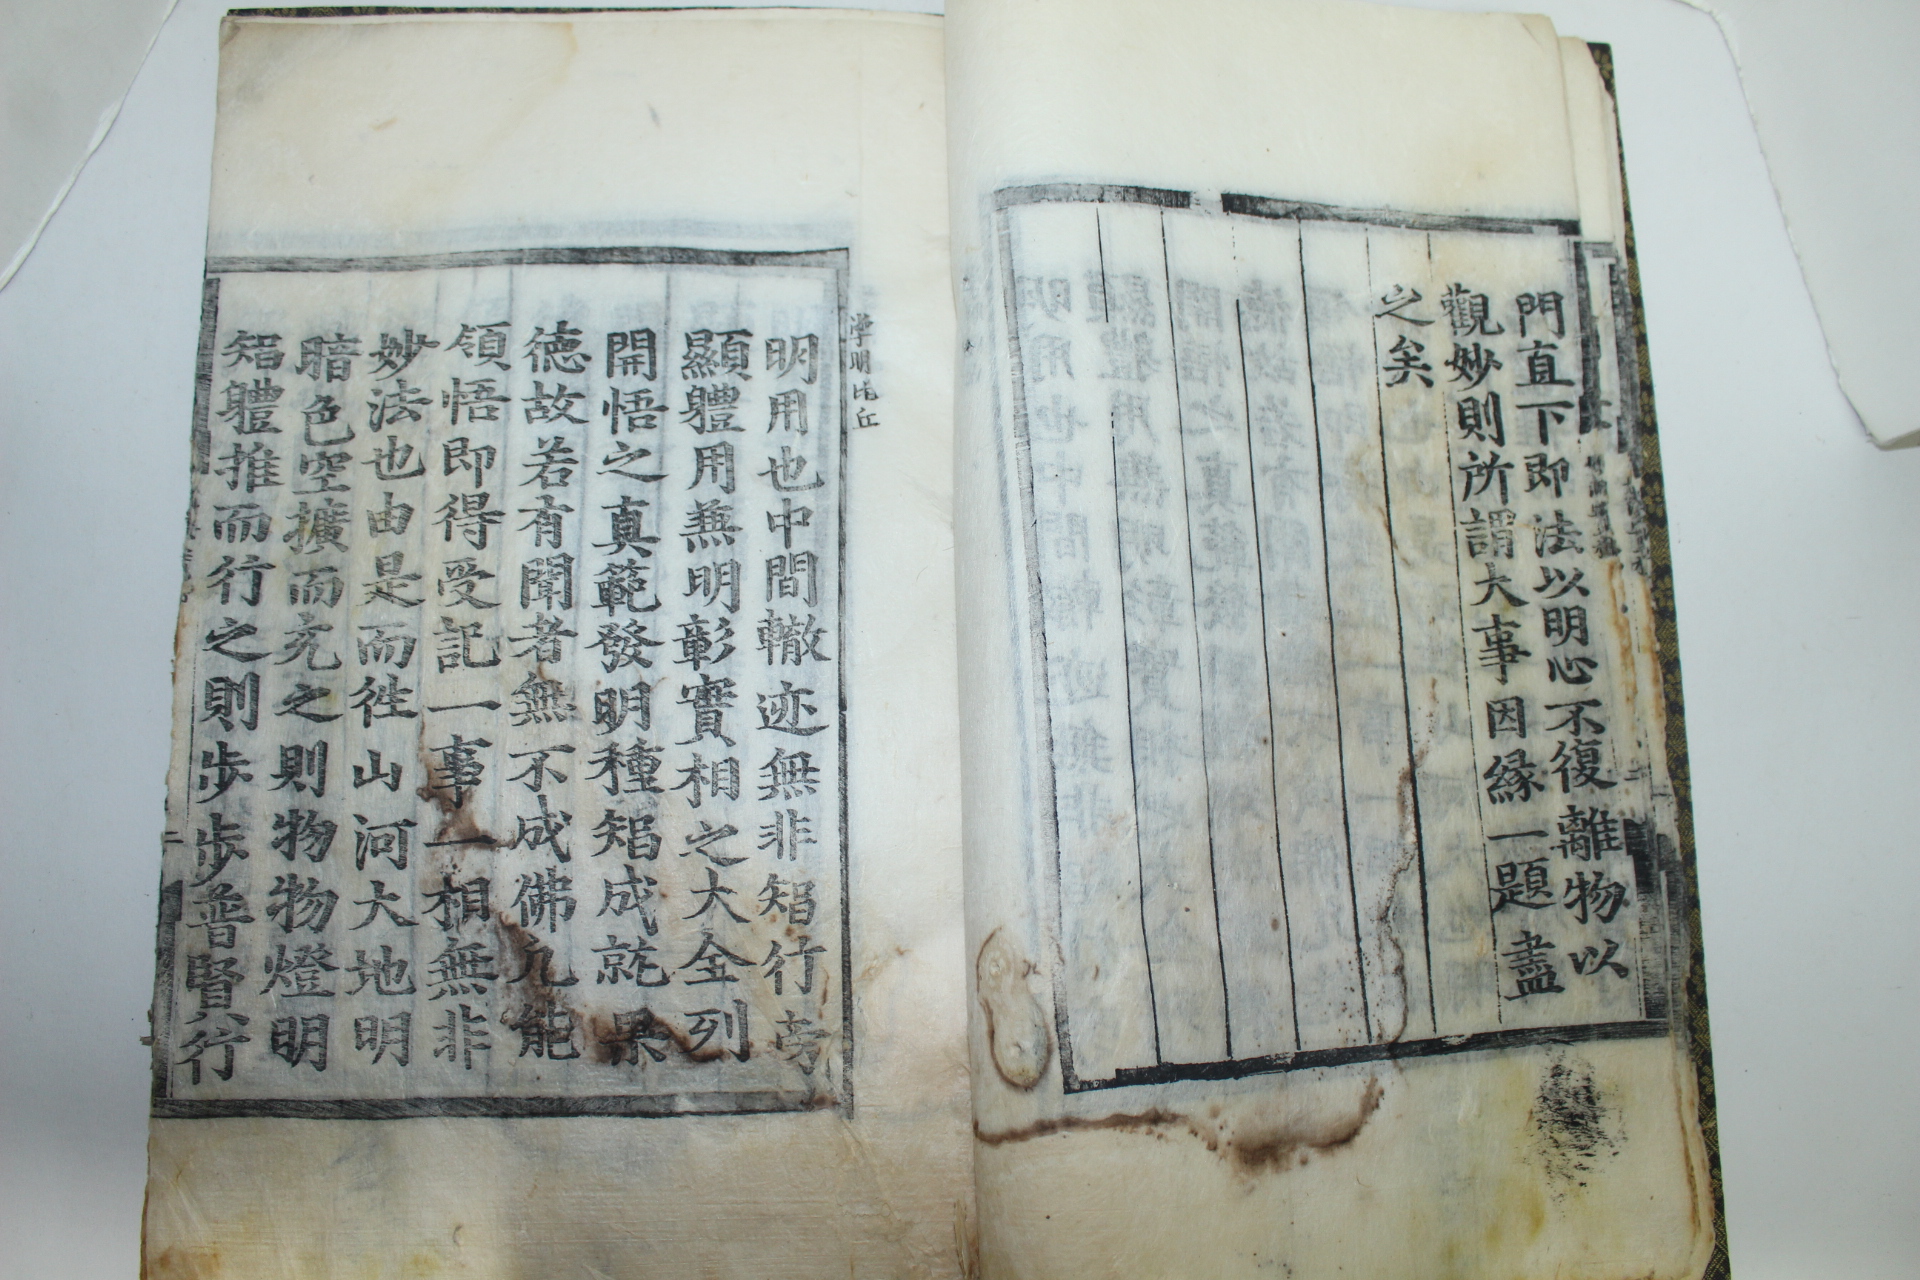 門直下即法以明心不復離物以
觀妙則所謂大事因縁一題盡
之矣
明比丘
明用也中間轍迹無非智行旁
顯體用兼明彰實相之大全列
開悟之真範發明種智成就果
德故若有聞者無不成佛九能
領悟即得受記一事一相無非
妙法也由是而徃山河大地明
暗色空擴而充之則物物燈明
智體推而行之則步步普賢行